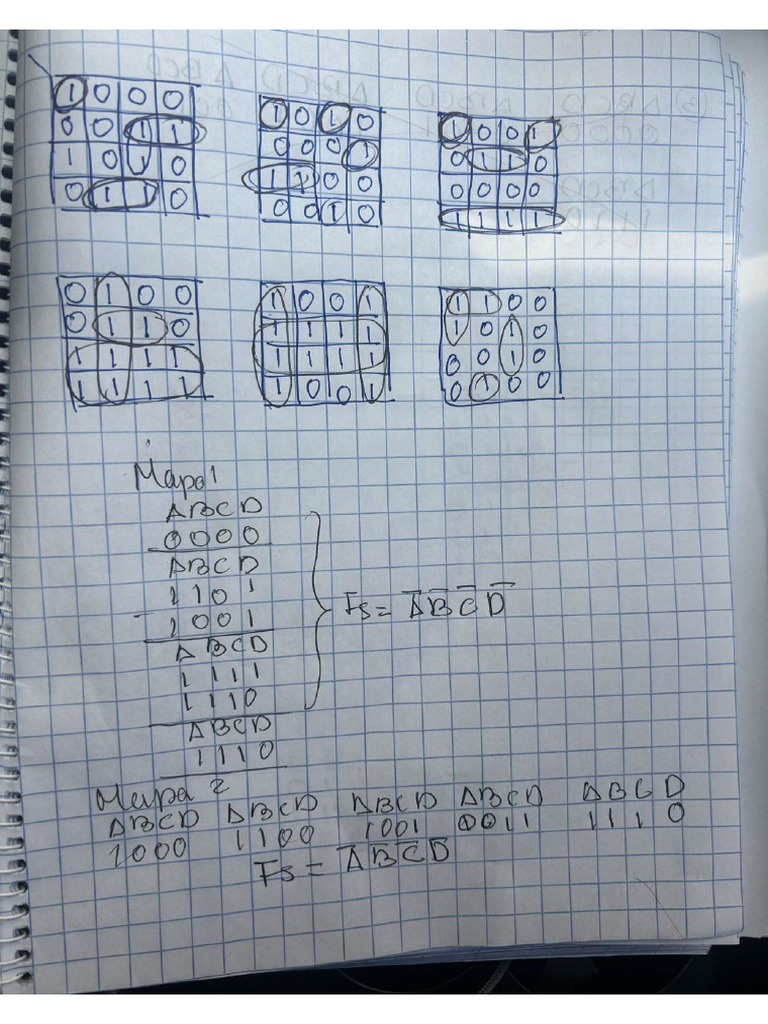 1 0 0 0
0 0 1 1
1 0 1 0
0 1 1 0
1 0 1 0
0 0 0 0
1 1 0 0
0 0 1 0
1 0 0 1
0 1 1 0
0 0 0 0
1 1 1 1
0 1 0 0
0 1 1 0
1 1 1 1
1 1 1 1
1 0 0 1
1 1 1 1
1 1 1 1
1 0 0 1
1 1 0 0
1 0 1 0
0 0 1 0
0 1 0 0
Mapa 1
ABCD
0000
ABCD
1101
1001
ABCD
1111
1110
Fs = A̅ B̅ C̅ D̅
ABCD
1110
Mapa 2
ABCD ABCD ABCD ABCD ABCD
1000 1100 1001 0011 1110
Fs = A̅ B̅ C̅ D̅